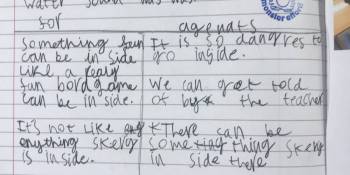 for
agenats
Something fun
can be in side
Like a realy
fun bord game
can be in side.
It is so dangres to
go inside.
We can get told
of by the teacher
It's not like
enything skery
is inside.
There can be
something skery
in side there